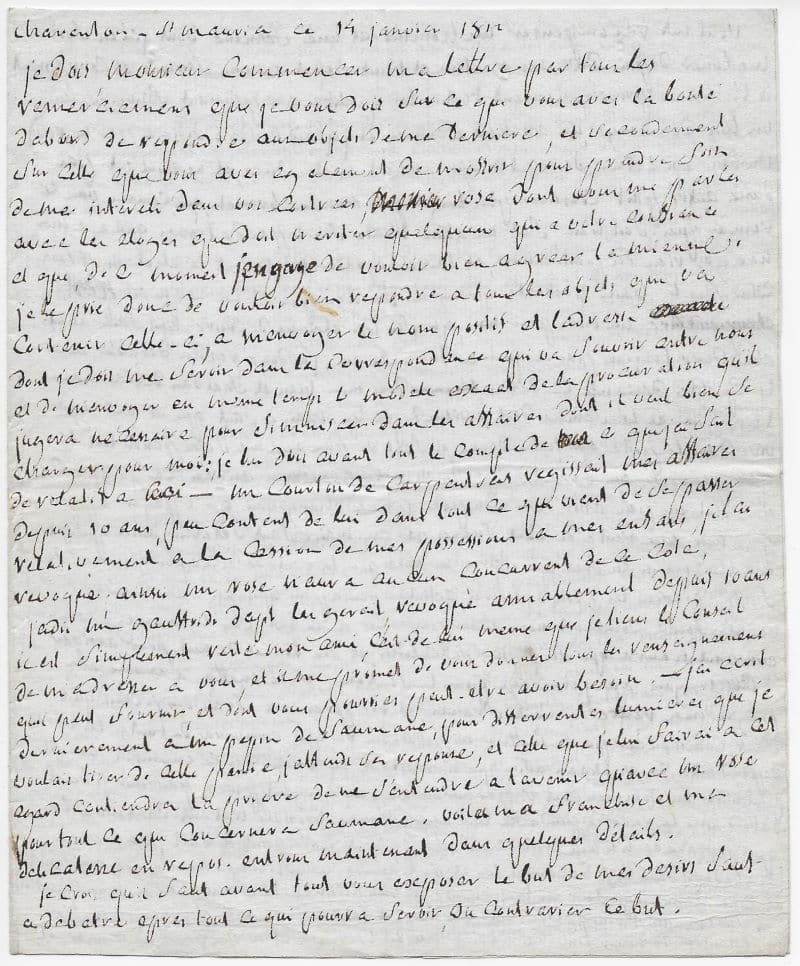 charenton - St maurice ce 14 janvier 1812
je dois monsieur commencer ma lettre par tous les
remerciemens que je vous dois sur ce que vous aves la bonté
dabord de repondre aux objets de ma derniere, et secondement
sur celle que vous aves egalement de moffrir pour prendre soin
de mes interets dans vos contrees, rose dont vous me parles
avec les eloges que doit meriter quelquun qui a votre confiance
et que de ce moment jengage de vouloir bien agreer la mienne.
je le prie donc de vouloir bien repondre a tous les objets que va
contenir celle-ci, a menvoyer le nom positif et ladresse
dont je dois me servir dans la correspondance qui va souvrir entre nous
et de menvoyer en meme temps le modele exact de la procuration quil
jugera necessaire pour simmiscer dans les affaires dont il veut bien se
charger pour moi; je lui dois avant tout le compte de ce que jai fait
de relatif a — un Courton de Carpentras regissait mes affaires
depuis 10 ans, peu content de lui dans tout ce qui vient de se passer
relativement a la cession de mes possessions a mes enfans, je lai
revoqué. ainsi mr rose naura aucun concurrent de ce coté,
jadis mr gauffridi dapt revoqué amiablement depuis 10 ans
il est simplement resté mon ami, cest de lui meme que je tiens le conseil
de madresser a vous, et il me promet de vous donner tous les renseignemens
quil peut fournir, et dont vous pourries peut-etre avoir besoin. — jai ecrit
dernierement a mr pepin de Saumane, pour differentes lumieres que je
voulais tirer de cette partie, jattends sa reponse, et celle que je lui fairai a cet
egard contiendra la priere de ne sentendre a lavenir quavec mr rose
pour tout ce qui concernera Saumane. voila ma franchise et ma
delicatesse en repos. entrons maintenant dans quelques détails.
je crois quil faut avant tout vous exposer le but de mes desirs sauf
a debatre apres tout ce qui pourra servir ou contrarier ce but.